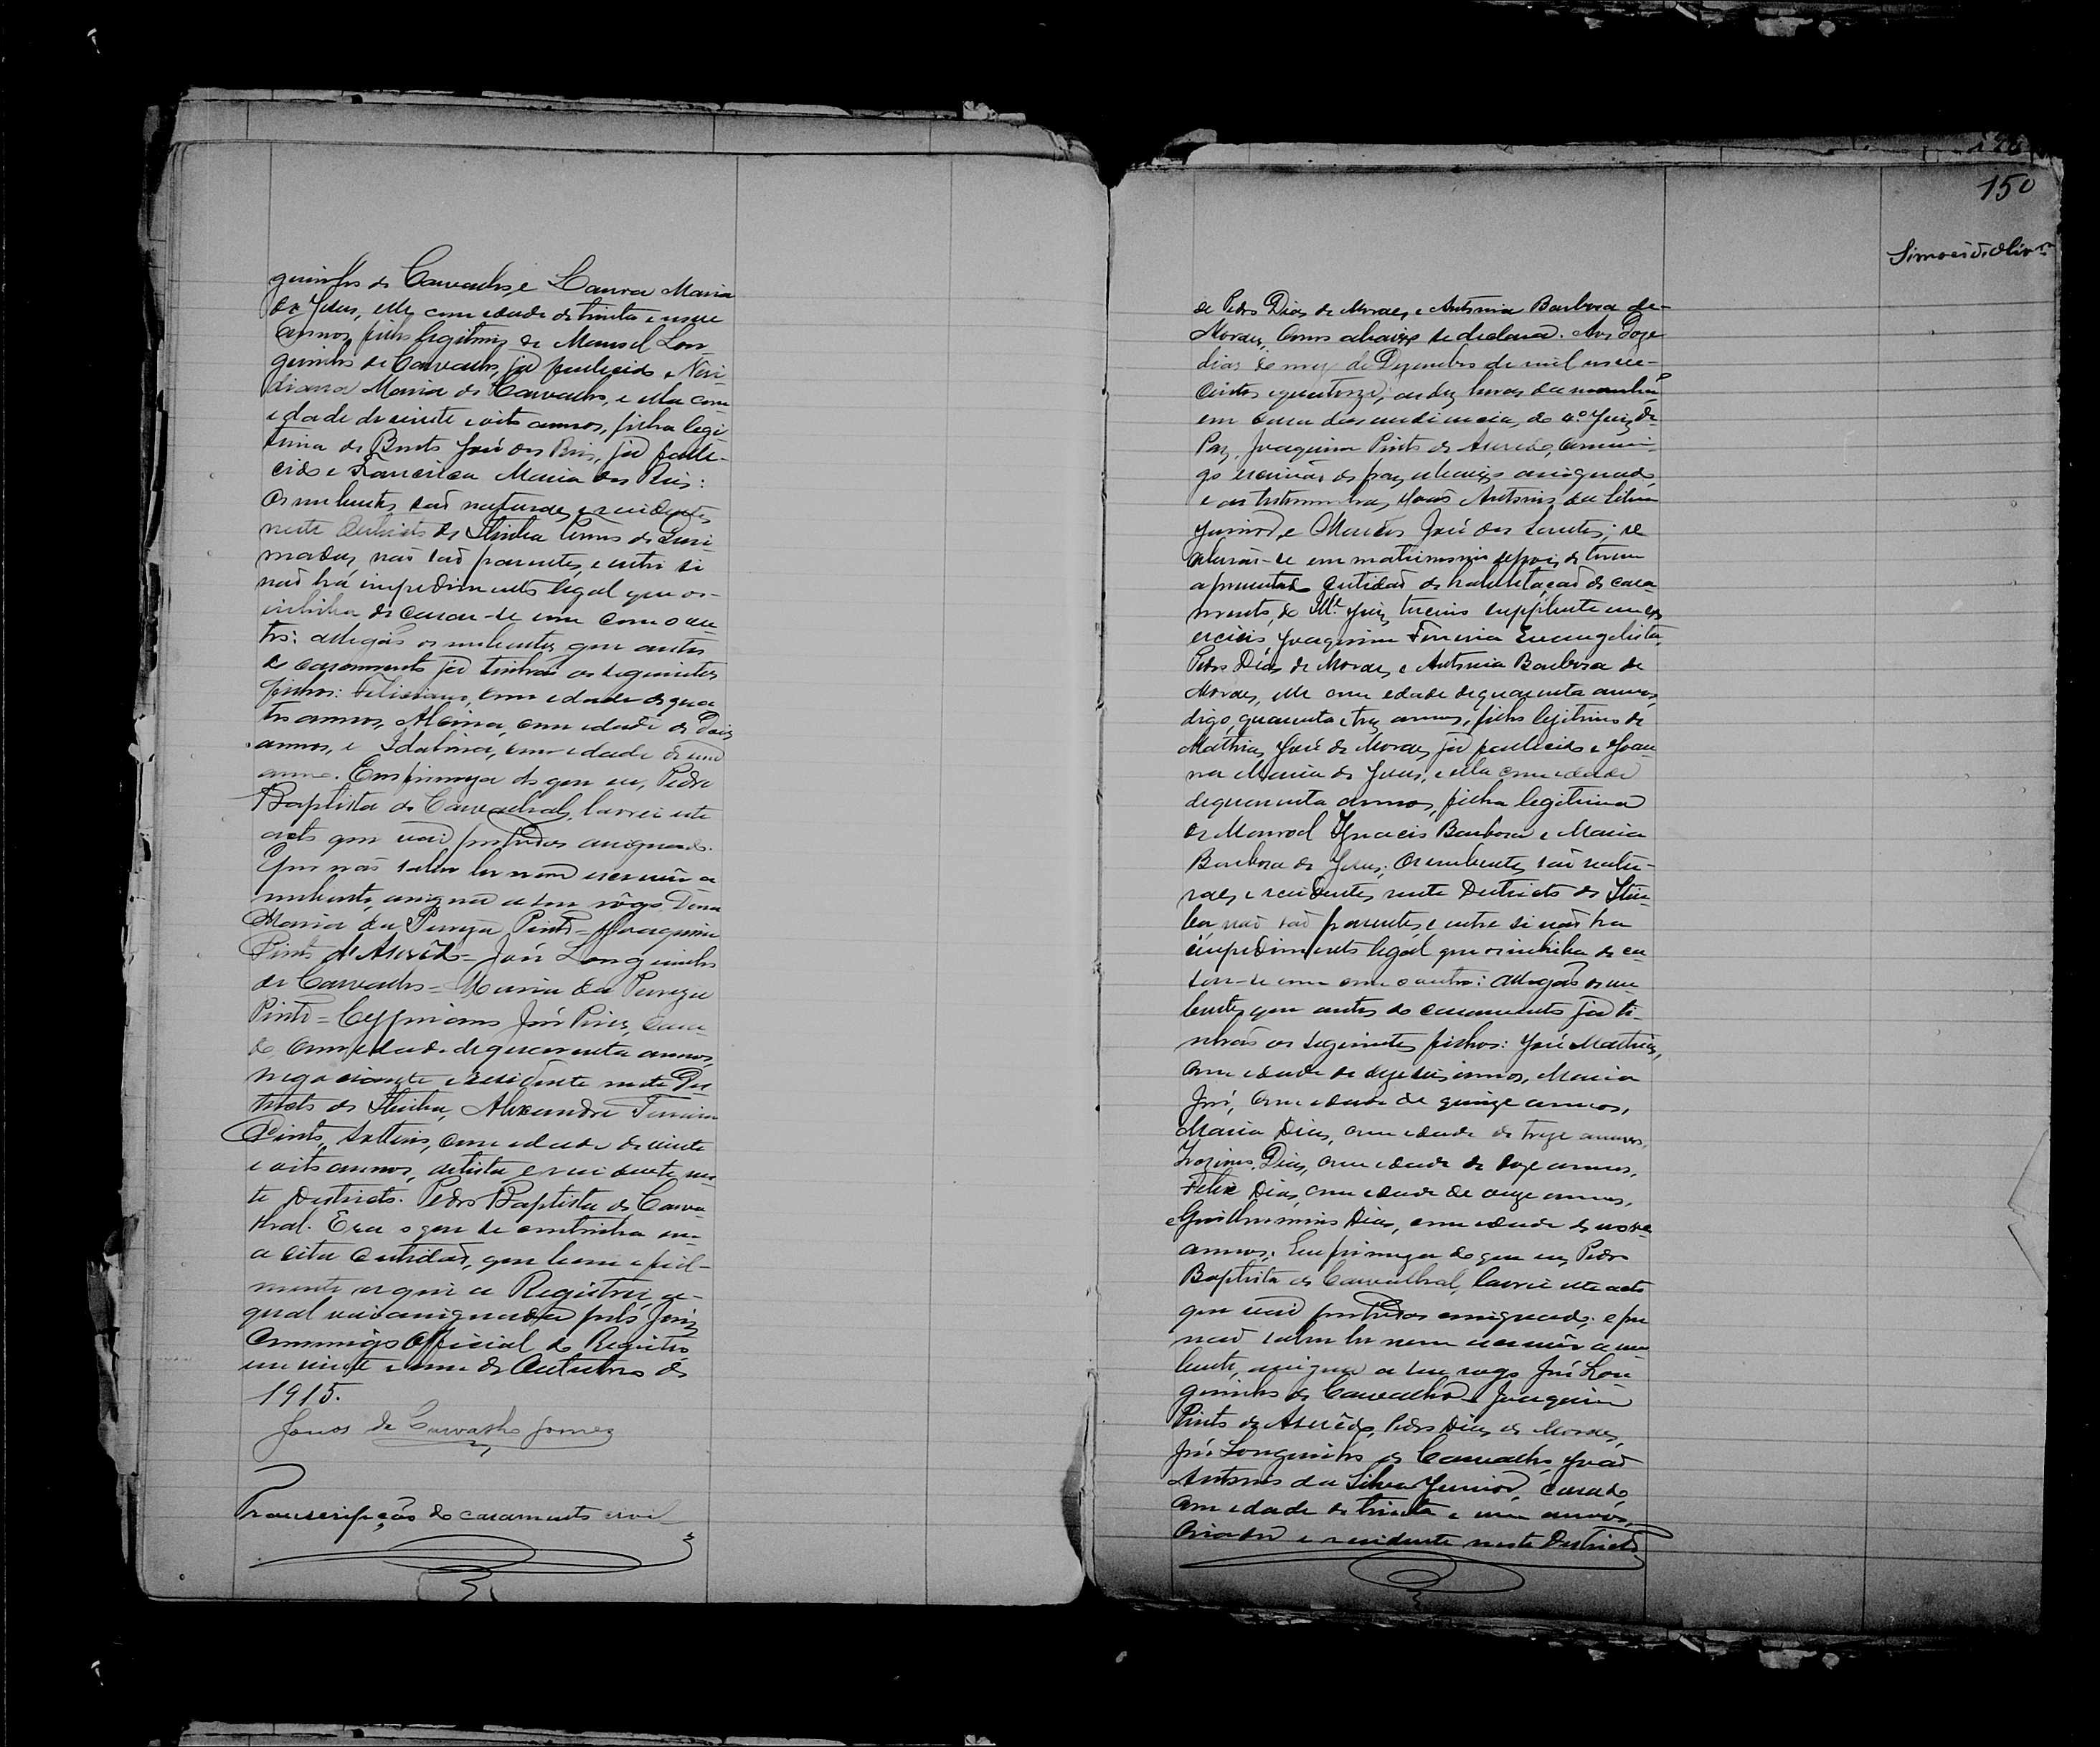 guinho de Carvalho, e Laura Maria
de Jesus, elle com edade de trinta e nove
annos, filho legitimo de Manoel Lon-
guinho de Carvalho, já fallecido e
Maria de Carvalho, e ella com
edade de vinte e oito annos, filha legi-
tima de Bento José dos Reis, já falle-
cido e Francisca Maria dos Reis:
Os nubentes são naturaes e residentes
neste Districto de
não são parentes, e entre si
não há impedimento legal que os
inhiba de casar-se um com o ou-
tro: allegão os nubentes que antes
do casamento já tinhão os seguintes
filhos: Feliciano, com edade de qua
tro annos, Alcina, com edade de dois
annos, e Idalina, com edade de um
anno. Em firmeza do que eu, Pedro
Baptista de Carvalhal, lavrei este
acto que vai por todos assignado.
Por não saber ler nem escrever a
nubente, assigna a seu rôgo Dona
Maria da Pureza Pinto = Joaquim
Pinto de Asevêdo = José Longuinho
de Carvalho = Maria da Pureza
Pinto = Cypriano José Pires, casa-
do, com edade de quarenta annos,
negociante e residente neste Dis
tricto de Alexandre Ferreira
Pinto, solteiro, com edade de vinte
e oito annos, artista, e residente nes-
te Districto. Pedro Baptista de Carva-
lhal. Era o que se continha em
a dita certidão, que bem e fiel-
mente a qui a Registrei, a
qual vai assignada pelo Juiz
Commigo Official do Registro
em vinte e um de Outubro de
1915.
Jonas de Carvalho Gomes
Transcripção do casamento civil
150
Simões d' Olivra
de Pedro Dias de Moraes e Antonia Barbosa de
Moraes, como abaixo se declara. Aos doze
dias do mez de Dezembro de mil nove-
centos e quatorze, as dez horas da manhã
em casa das audiencias, do 4º Juiz de
Paz, Joaquim Pinto de Asevedo, commi-
go escrivão de paz abaixo assignado,
e as testemunhas João Antonio da Silva
Junior, e José dos Santos; re
ceberão-se em matrimonio depois de terem
apresentado certidão de habilitação de casa
mento, do Mto. Juiz, terceiro supplente em ex
ercicio, Joaquim Ferreira Evangelista,
Pedro Dias de Moraes e Antonia Barbosa de
Moraes, elle com edade de quarenta annos,
digo, quarenta e tres annos, filho legitimo de
Mathias José de Moraes, já fallecido e Joan
na Maria de Jesus, e ella com edade
de quarenta annos, filha legitima
de Manoel Ignacio Barbosa e Maria
Barbosa de Jesus; Os nubentes são natu-
raes e residentes neste Districto de
não são parentes, e entre si não ha
impedimento legal que os inhiba de ca
sar-se um com o outro: allegão os nu
bentes que antes do casamento já ti-
nhão os seguintes filhos: José Mathias,
com edade de dezeseis annos, Maria
José, com edade de quinze annos,
Maria Dias, com edade de treze annos,
Dias, com edade de doze annos,
Felix Dias, com edade de onze annos,
Guilhermino Dias, com edade de nove
annos. Em firmeza do que eu, Pedro
Baptista de Carvalhal, lavrei este acto
que vai por todos assignado; e por
não saber ler nem escrever a nu
bente, assigna a seu rogo José Lon
guinho de Carvalho. Joaquim
Pinto de Asevêdo, Pedro Dias de Moraes,
José Longuinho de Carvalho, João
Antonio da Silva Junior, casado,
com edade de trinta e um annos,
criador e residente neste Districto